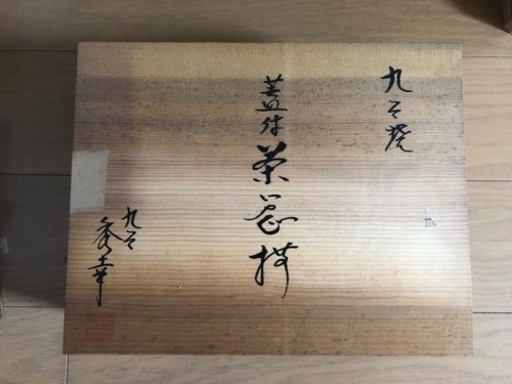 九谷焼
蓋付
茶器揃
九谷
秀幸